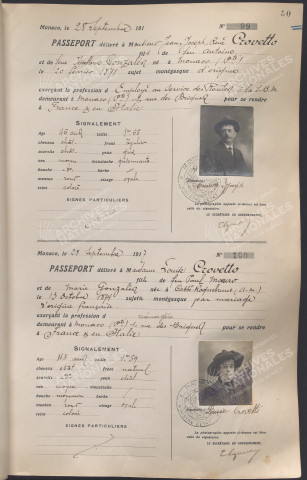 20
Monaco, le 28 Septembre 191
N° 99
PASSEPORT délivré à Monsieur Jean Joseph René Crovetto
fils de feu Antoine
et de feue Gonzalez né à Monaco
le 20 février 1871 sujet monégasque d'origine
exerçant la profession d Employé au Service des
demeurant à Monaco rue des Briques pour se rendre
France & en Italie
SIGNALEMENT
Age 46 ans Taille 1m 68
cheveux chat. front régulier
sourcils chat. yeux gris
nez moyen moustache grisonnante
bouche barbe
menton rond visage ovale
teint coloré
SIGNES PARTICULIERS
La photographie apposée ci-dessus est bien
celle du signataire.
LE SECRÉTAIRE DU GOUVERNEMENT,
Monaco, le 29 Septembre 1917
N° 100
PASSEPORT délivré à Madame Louise Crovetto
fille de feu Paul
et de Marie Gonzalez née à Cabbé Roquebrune (A.-M.)
le 13 octobre sujette monégasque par mariage
d'origine française
exerçant la profession d
demeurant à Monaco rue des Briques pour se rendre
France & en Italie
SIGNALEMENT
Age ans Taille 1m 59
cheveux chat front naturel
sourcils yeux chat
nez moyen moustache
bouche moyenne barbe
menton rond visage ovale
teint coloré
SIGNES PARTICULIERS
Louise Crovetto
La photographie apposée ci-dessus est bien
celle du signataire.
LE SECRÉTAIRE DU GOUVERNEMENT,